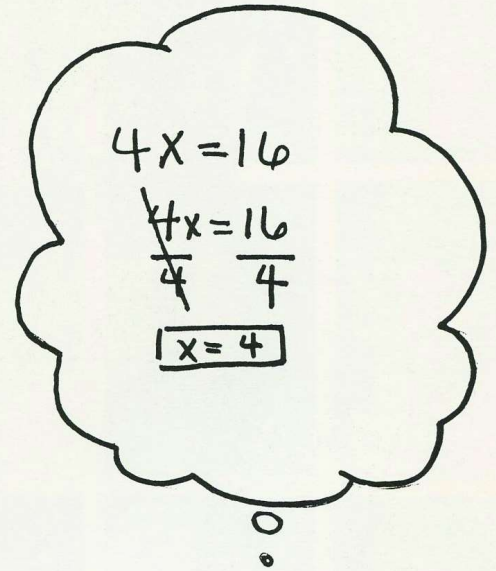 4x=16
4x=16
4 4
x=4